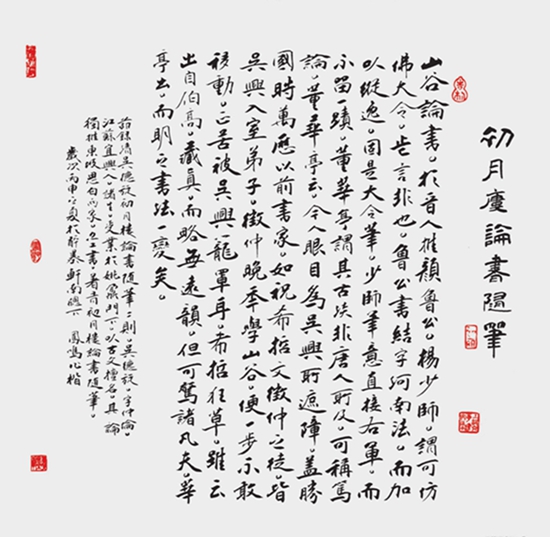 初月廔論書隨筆
山谷論書。於晉人推顏魯公。楊少師。謂可仿
佛大令。此言非也。魯公書結字河南法。而加
以縱逸。固是大令筆。少師筆意直接右軍。而
不留一蹟。董華亭謂其古淡非唐人所及。可稱篤
論。董華亭云。今人眼目為吳興所遮障。蓋勝
國時萬歷以前書家。如祝希哲文徵仲之徒。皆
吳興入室弟子。徵仲晚年學山谷。便一步不敢
移動。正苦被吳興籠罩耳。希哲狂草。雖云
出自伯高。藏真。而略無遠韻。但可驚諸凡夫。華
亭出。而明之書法一變矣。
節錄清吳德旋初月樓論書隨筆二則。吳德旋。字仲倫。
江蘇宜興人。諸生。受業於姚鼐門下。以古文擅名。其論
獨推東坡思白兩家。尤工書。著有初月樓論書隨筆。
歲次丙申之夏於靜軒南窗下 鳳鳴心楷